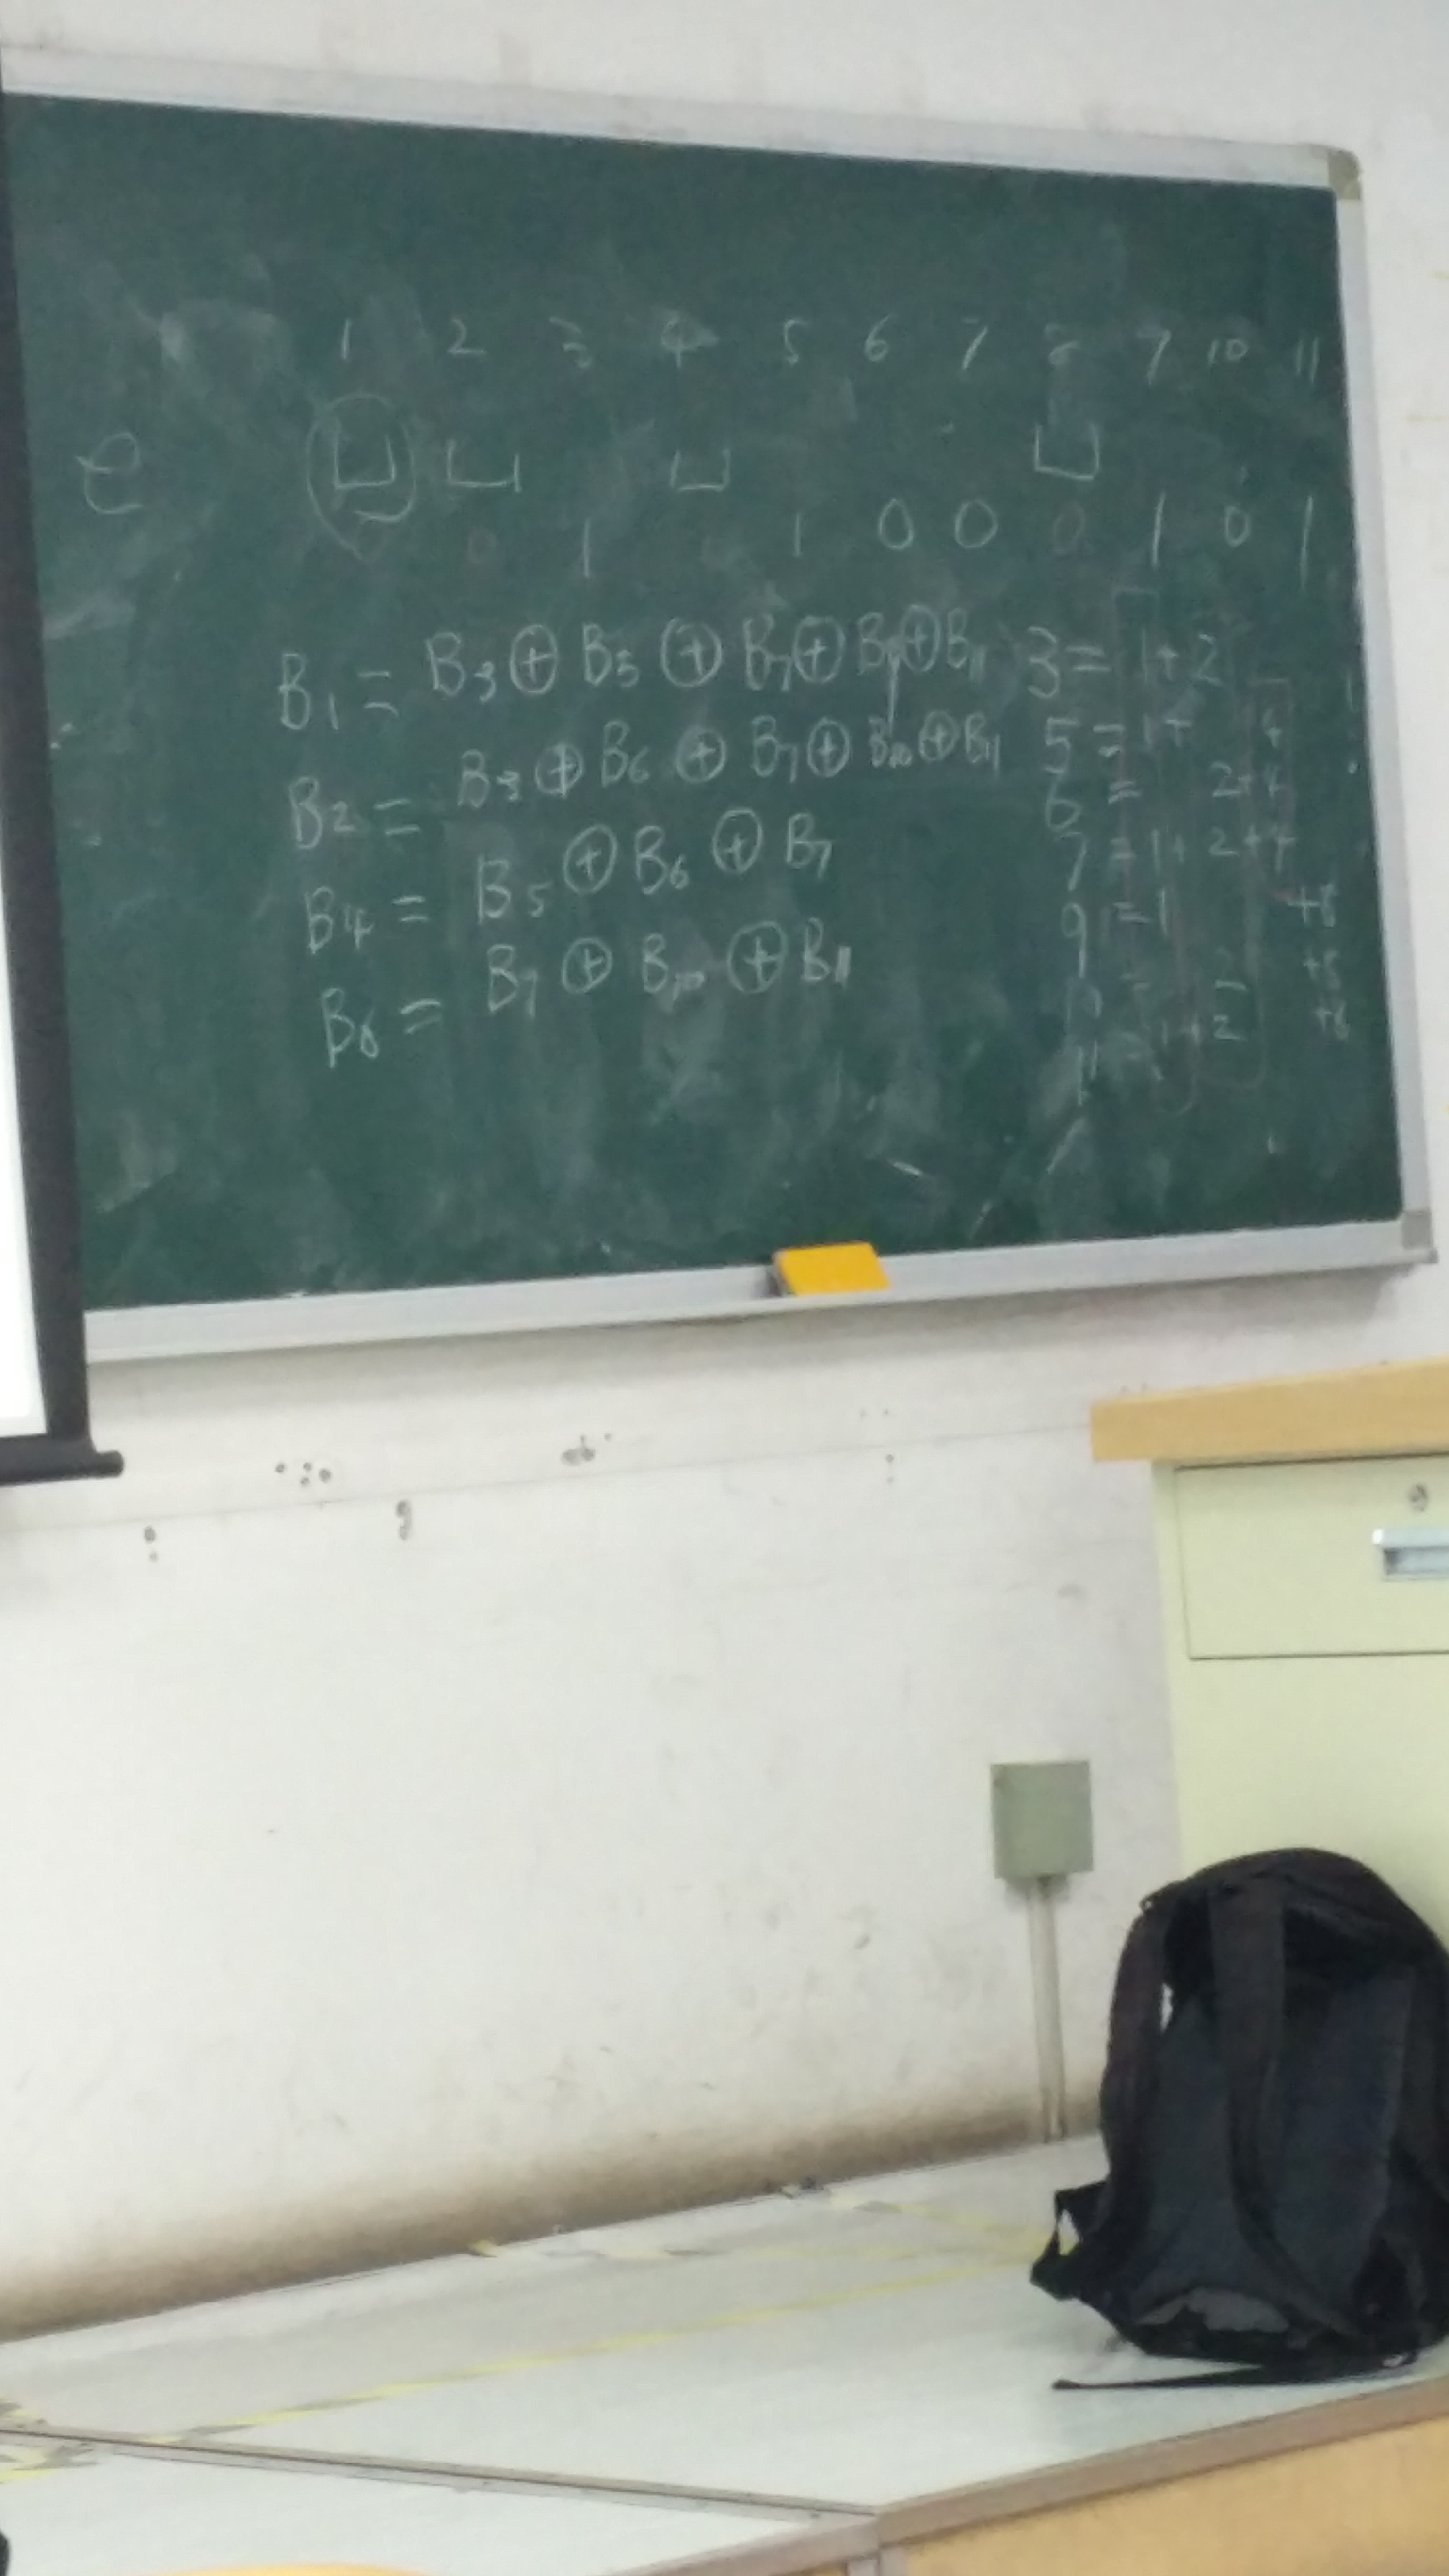 1 2 3 4 5 6 7 8 9 10 11
e
0 1 1 0 0 0 1 0 1
B1 = B3 ⊕ B5 ⊕ B7 ⊕ B9 ⊕ B11
B2 = B3 ⊕ B6 ⊕ B7 ⊕ B10 ⊕ B11
B4 = B5 ⊕ B6 ⊕ B7
B8 = B9 ⊕ B10 ⊕ B11
3 = 1 + 2
5 = 1 + 4
6 = 2 + 4
7 = 1 + 2 + 4
9 = 1 + 8
10 = 2 + 8
11 = 1 + 2 + 8